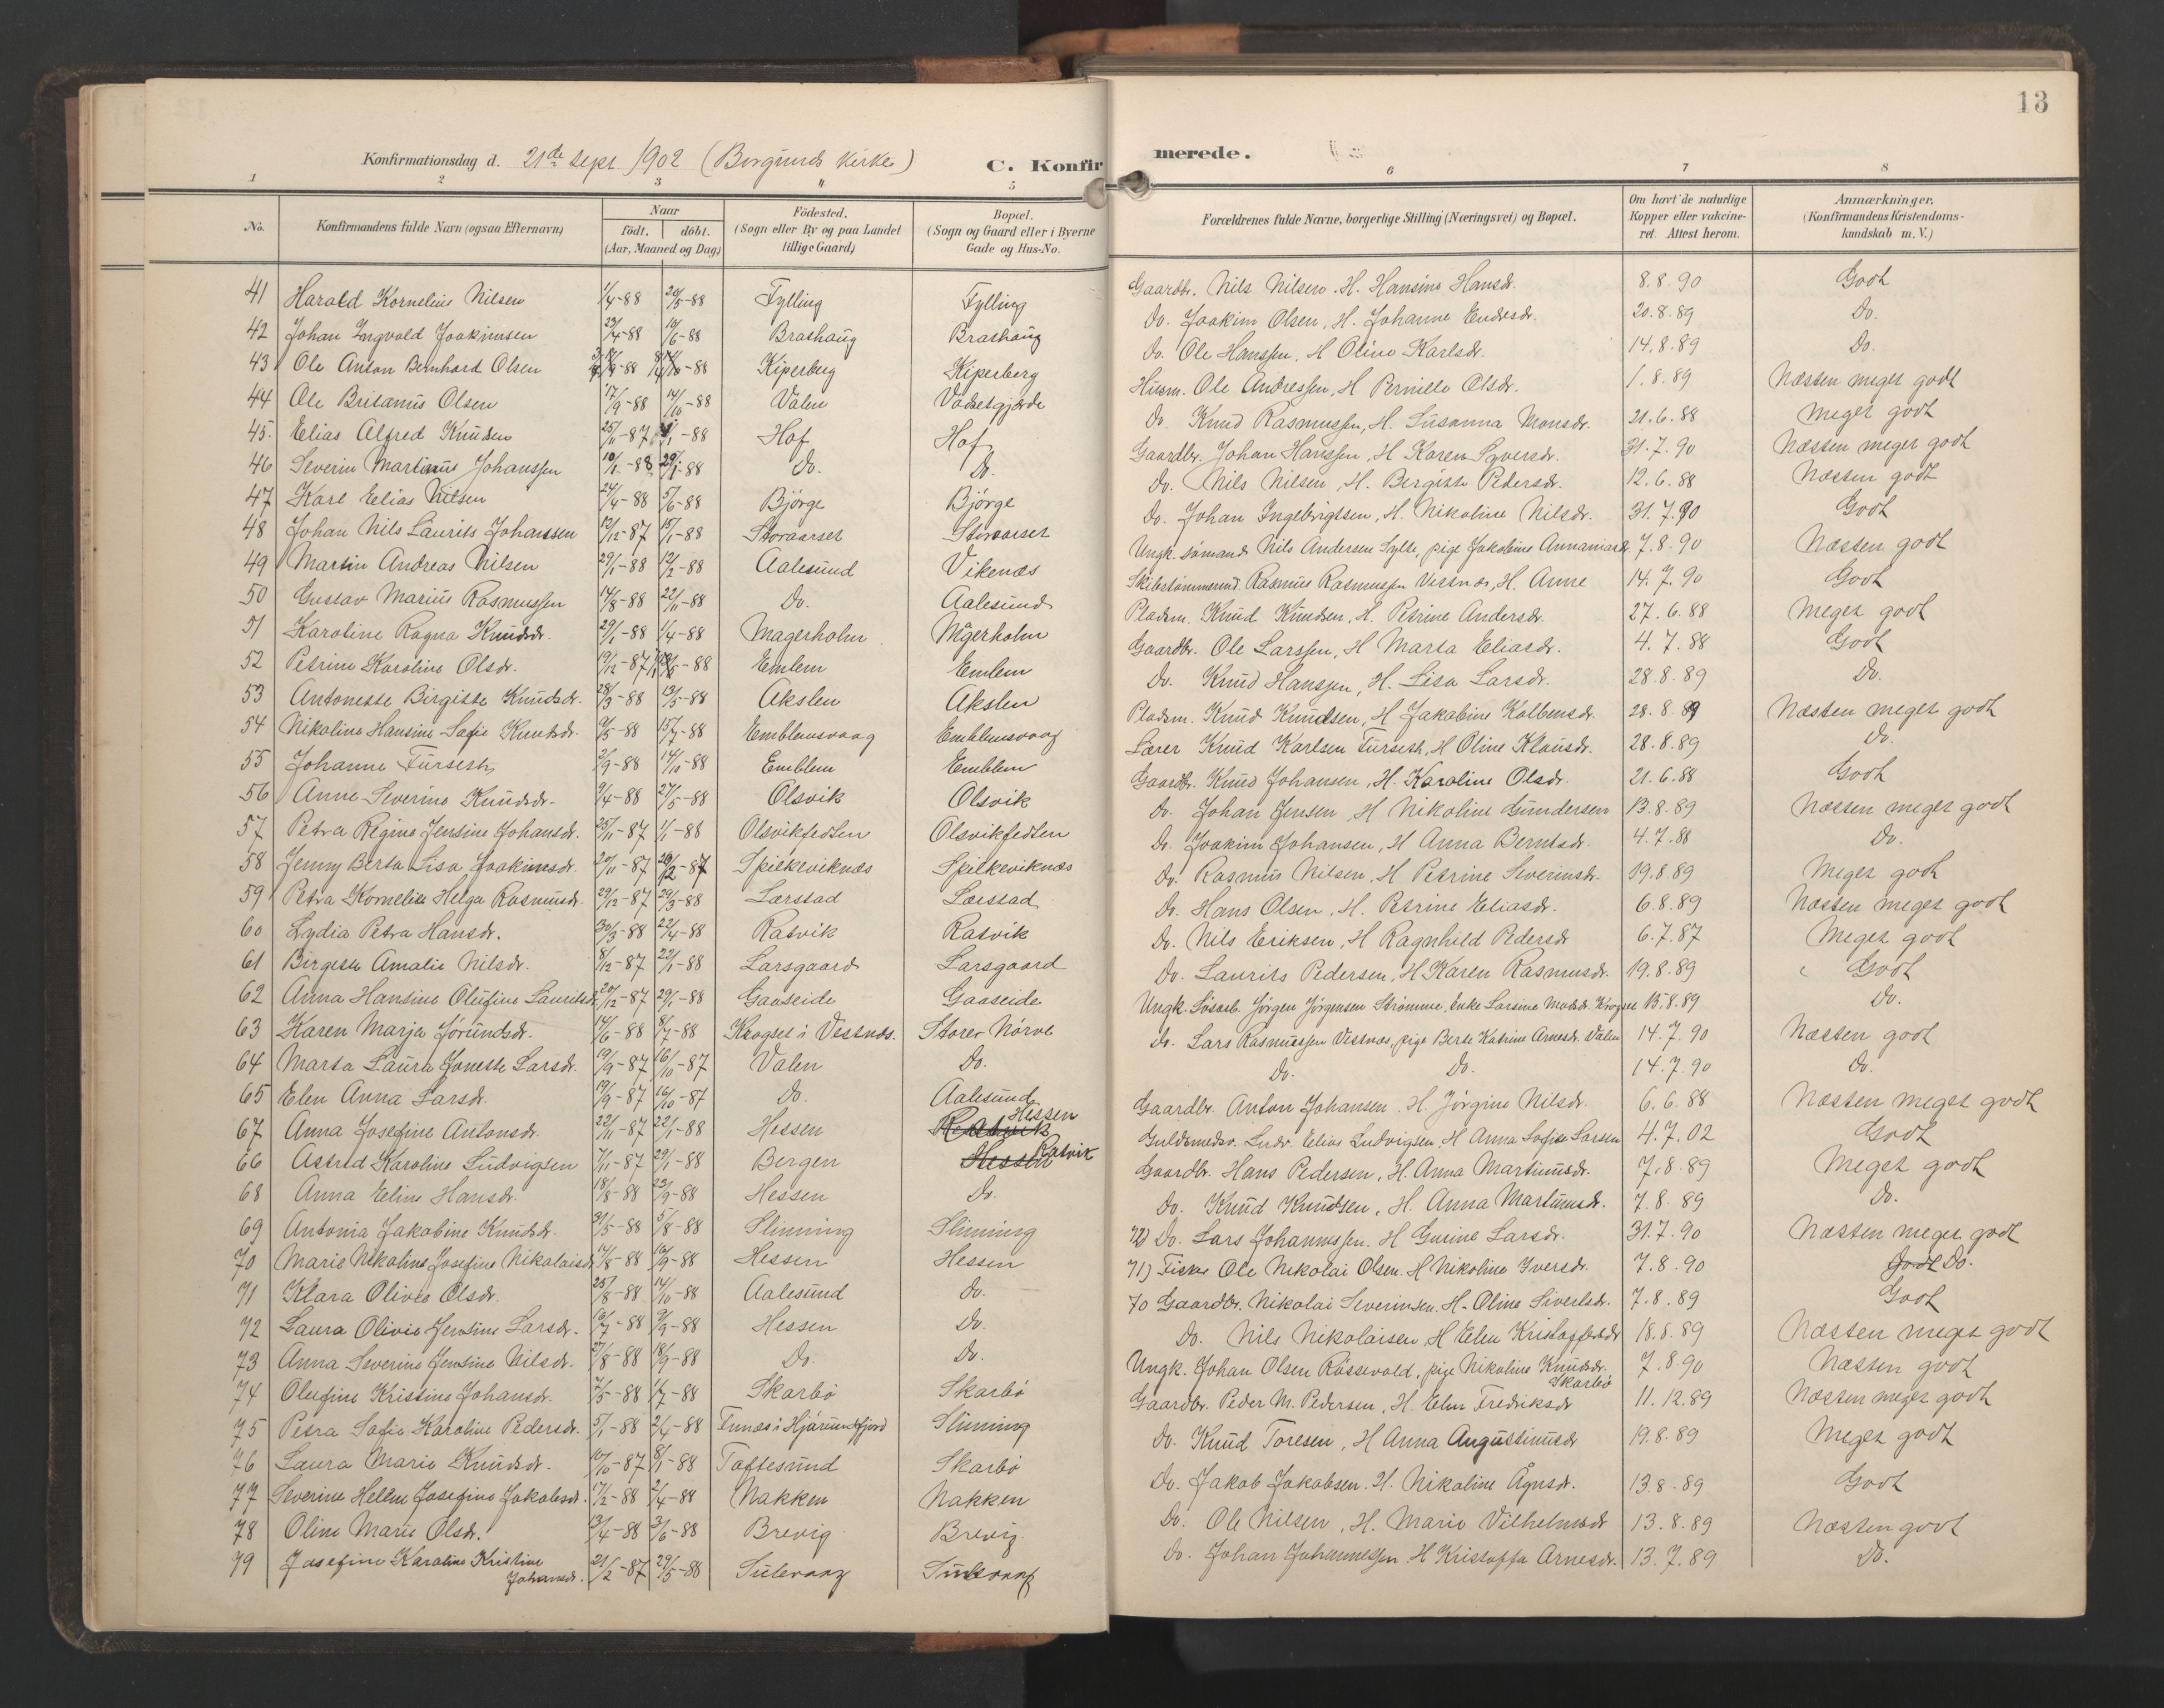 13
Konfirmationsdag d. 21de Sept 1902 (Borgunds Kirke) C. Konfirmerede.
1 2 3 4 5 6 7 8
No. Konfirmandens fulde Navn (ogsaa Efternavn) Naar födt. döbt. (Aar, Maaned og Dag) Födested. (Sogn eller By og paa Landet tillige Gaard) Bopæl. (Sogn og Gaard eller i Byerne Gade og Hus-No. Forældrenes fulde Navne, borgerlige Stilling (Næringsvei) og Bopæl. Om havt de naturlige Kopper eller vakcineret. Attest herom. Anmærkninger. (Konfirmandens Kristendomskundskab m. V.)
41 Harald Kornelius Nilsen 1/4-88 20/5-88 Fylling Fylling Gaardbr. Nils Nilsen. H. Hansine Hansdr. 8.8.90 Godt
42 Johan Ingvald Joakimsen 23/4-88 10/6-88 Brathaug Brathaug Do. Joakim Olsen, H. Johanne Endresdr. 20.8.89 Do.
43 Ole Anton Bernhard Olsen Kiperberg Kiperberg Do. Ole Hanssen, H Oline Karlsdr. 14.8.89 Do.
44 Ole Britanus Olsen 17/9-88 14/10-88 Valen Vadsetgjerde Husm. Ole Andressen, H Pernille Olsdr. 1.8.89 Næsten meget godt
45. Elias Alfred Knudsen 25/11-87 1/1-88 Hof Hof Do. Knud Rasmussen, H. Susanna Monsdr. 21.6.88 Meget godt
46 Severin Martinus Johanssen 10/1-88 29/1-88 Do. Do. Gaardbr. Johan Hanssen, H Karen Syversdr. 31.7.90 Næsten meget godt
47 Karl Elias Nilsen 24/4-88 5/6-88 Björge Björge Do. Nils Nilsen, H. Bergitte Pedersdr. 12.6.88 Næsten godt
48 Johan Nils Laurits Johanssen 12/12-87 15/1-88 Storaarset Storaarset Do. Johan Ingebrigtsen, H. Nikoline Nilsdr. 31.7.90 Godt
49 Martin Andreas Nilsen 29/1-88 12/2-88 Aalesund Vikenæs Ungk. sömand Nils Andersen Sylte, pige Jakobine Annaniasdr. 7.8.90 Næsten godt
50 Gustav Marius Rasmussen 14/8-88 22/11-88 Do. Aalesund Skibstömmermd. Rasmus Rasmussen Vestnæs, H. Anne 14.7.90 Godt
51 Karoline Ragna Knudsdr. 29/1-88 1/4-88 Magerholm Magerholm Pladsm. Knud Knudsen, H. Petrine Andersdr. 27.6.88 Meget godt
52 Petrine Karoline Olsdr. 19/12-87 Emlem Emlem Gaardbr. Ole Larssen, H Marta Eliasdr. 4.7.88 Godt
53 Antonette Birgitte Knudsdr. 28/3-88 13/5-88 Akslen Akslen Do. Knud Hanssen, H. Lisa Larsdr. 28.8.89 Do.
54 Nikoline Hansine Sofie Knutsdr. 9/5-88 15/7-88 Emblemsvaag Emblemsvaag Pladsm. Knud Knudsen, H Jakobine Kolbensdr. 28.8.89 Næsten meget godt
55 Johanne Furseth 2/9-88 14/10-88 Emblem Emblem Lærer Knud Karlsen Furseth, H Oline Klausdr. 28.8.89 Do.
56 Anne Severine Knudsdr. 9/4-88 27/5-88 Olsvik Olsvik Gaardbr. Knud Johansen, H. Karoline Olsdr. 21.6.88 Godt
57 Petra Regine Jensine Johansdr. 25/11-87 1/1-88 Olsvikfedten Olsvikfedten Do. Johan Jensen, H Nikoline Gundersen 13.8.89 Næsten meget godt
58 Jenny Berta Lisa Joakimsdr. 20/11-87 26/12-87 Spilkeviknæs Spilkeviknæs Do. Joakim Johansen, H Anna Berntsdr. 4.7.88 Do.
59 Petra Kornelia Helga Rasmusdr. 29/12-87 29/3-88 Lærstad Lærstad Do. Rasmus Nilsen, H Petrine Severinsdr. 19.8.89 Meget godt
60 Lydia Petra Hansdr. 30/3-88 22/4-88 Ratvik Ratvik Do. Hans Olsen, H. Petrine Eliasdr. 6.8.89 Næsten meget godt
61 Birgitte Amalie Nilsdr. 8/12-87 22/1-88 Larsgaard Larsgaard Do. Nils Eriksen, H Ragnhild Pedersdr 6.7.87 Meget godt
62 Anna Hansine Olufine Lauritsdr. 20/12-87 29/1-88 Gaaseide Gaaseide Do. Laurits Pedersen, H Karen Rasmusdr. 19.8.89 Godt
63 Karen Marja Jörundsdr. 14/6-88 8/7-88 Krogset i Vestnæs. Store Nörve Ungk. Jörgen Jörgensen Strömme, Enke Larsine Madsdr. Krogset 15.8.89 Do.
64 Marta Laura Jonette Larsdr. 19/9-87 16/10-87 Valen Do. Do. Lars Rasmussen Vestnæs, pige Berte Katrine Arnesdr. Valen 14.7.90 Næsten godt
65 Elen Anna Larsdr. 19/9-87 16/10-87 Do. Aalesund Do. Do. 14.7.90 Do.
67 Anna Josefine Antonsdr. 22/11-87 22/1-88 Hessen Ratvik Hessen Gaardbr. Anton Johansen. H. Jörgine Nilsdr. 6.6.88 Næsten meget godt
66 Astrid Karoline Ludvigsen 7/11-87 29/1-88 Bergen Hessen Ratvik Guldsmedsv. Ludv. Elias Ludvigsen, H Anna Sofie Larsen 4.7.02 Godt
68 Anna Eline Hansdr. 18/8-88 23/9-88 Hessen Do. Gaardbr. Hans Pedersen, H. Anna Martinusdr. 7.8.89 Meget godt
69 Antonia Jakobine Knudsdr. 31/5-88 5/8-88 Slinning Slinning Do. Knud Knudsen, H. Anna Martinusdr. 7.8.89 Do.
70 Marie Nikoline Josefine Nikolaisdr. 14/8-88 16/9-88 Hessen Hessen 72) Do. Lars Johannessen. H Gurine Larsdr. 31.7.90 Næsten meget godt
71 Klara Olivia Olsdr. 25/8-88 14/10-88 Aalesund Do. 71) Fisker Ole Nikolai Olsen. H Nikoline Iversdr. 7.8.90 Godt Do.
72 Laura Olivie Jensine Larsdr. 16/7-88 9/9-88 Hessen Do. 70 Gaardbr. Nikolai Severinsen. H. Oline Sivertsdr. 7.8.89 Godt
73 Anna Severine Jensine Nilsdr. 27/8-88 18/9-88 Do. Do. Do. Nils Nikolaisen, H Elen Kristoffersdr 18.8.89 Næsten meget godt
74 Olufine Kristine Johansdr. 7/5-88 1/7-88 Skarbö Skarbö Ungk. Johan Olsen Rössevold, pige Nikoline Knudsdr. Skarbö 7.8.90 Næsten godt
75 Petra Sofie Karoline Pedersdr. 5/1-88 2/4-88 Slinning Gaardbr. Peder M. Pedersen, H. Elen Fredriksdr 11.12.89 Næsten meget godt
76 Laura Marie Knudsdr. 10/10-87 8/1-88 Toftesund Skarbö Do. Knud Toresen, H Anna Augustinusdr 19.8.89 Meget godt
77 Severine Helene Josefine Jakobsdr. 17/2-88 2/4-88 Nakken Nakken Do. Jakob Jakobsen. H. Nikoline Agnsdr. 13.8.89 Godt
78 Oline Marie Olsdr. 13/4-88 3/6-88 Brevig Brevig Do. Ole Nilsen, H. Marie Vilhelmsdr 13.8.89 Næsten godt
79 Josefine Karoline Kristine Johansdr. 21/2-87 29/5-88 Sulevaag Sulevaag Do. Johan Johannessen. H Kristoffa Arnesdr. 13.7.89 Do.